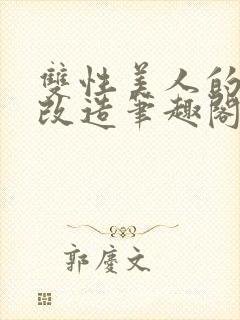 雙性美人的
改造筆趣閣
郭慶文